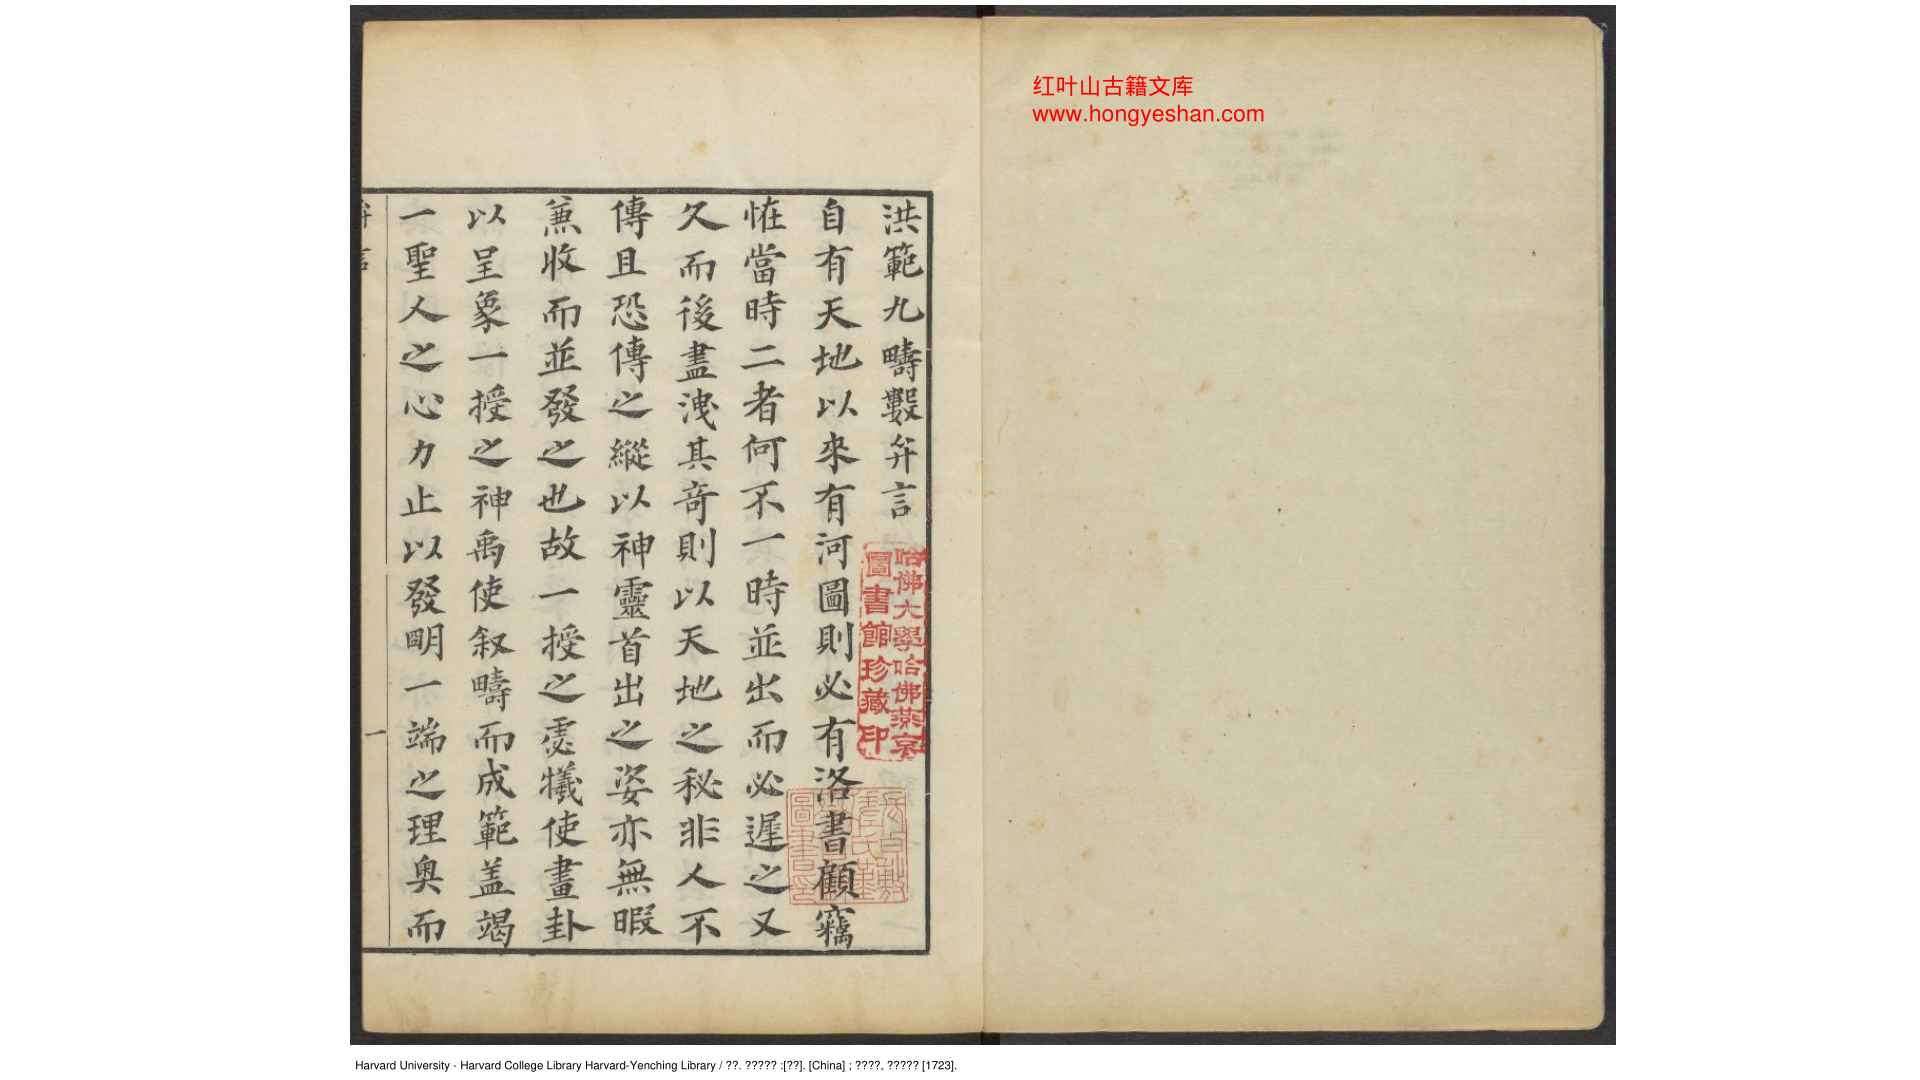 红叶山古籍文库
www.hongyeshan.com
洪範九疇數弁言
自有天地以來有河圖則必有洛書顧竊
恠當時二者何不一時並出而必遲之又
久而後盡洩其奇則以天地之秘非人不
傳且恐傳之縱以神靈首出之姿亦無暇
兼收而並發之也故一授之虙犧使畫卦
以呈象一授之神禹使叙疇而成範盖竭
一聖人之心力止以發明一端之理奥而
弁言
一
哈佛大學哈佛燕京
圖書館珍藏印
Harvard University - Harvard College Library Harvard-Yenching Library / ??. ????? :[??]. [China] ; ????, ????? [1723].